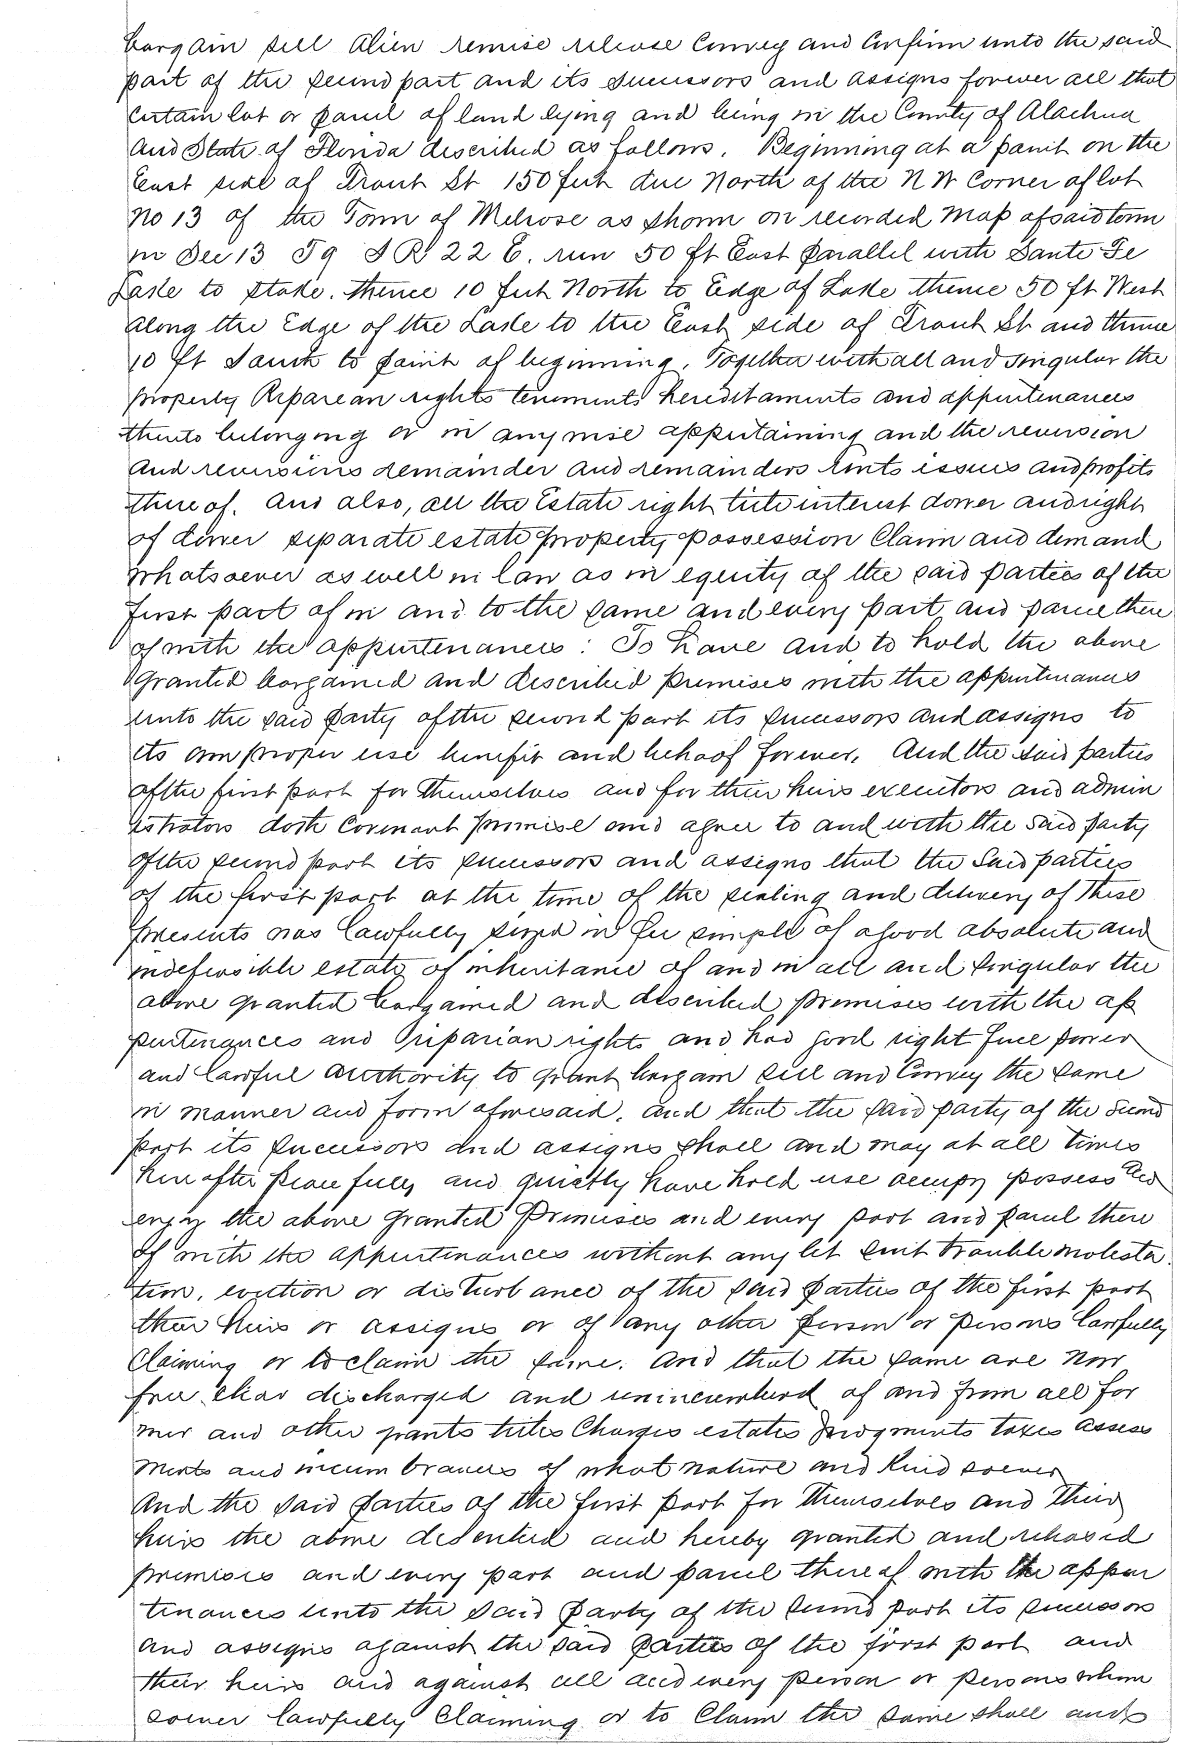 bargain sell Alien remise release Convey and Confirm unto the said
part of the second part and its successors and assigns forever all that
Certain lot or parcel of land lying and being in the County of Alachua
And State of Florida described as follows. Beginning at a point on the
East side of Front St 150 feet due North of the NW Corner of lot
No 13 of the Town of Melrose as shown on recorded Map of said town
in Sec 13 T9 S R 22 E. run 50 ft East parallel with Sante Fe
Lake to stake. thence 10 feet North to Edge of Lake thence 50 ft West
along the Edge of the Lake to the East side of Front St and thence
10 ft South to point of beginning. Together with all and singular the
property Riparean rights tenements hereditaments and appurtenances
thereto belonging or in any wise appertaining and the reversion
and reversions remainder and remainders rents issues and profits
thereof. And also, all the Estate right title interest dower and right
of dower separate estate property possession Claim and demand
whatsoever as well in law as in equity of the said parties of the
first part of in and to the same and every part and parcel there
of with the appurtenances: To have and to hold the above
granted bargained and described premises with the appurtenances
unto the said party of the second part its successors and assigns to
its own proper use benefit and behoof forever. And the said parties
of the first part for themselves and for their heirs executors and admin
istrators doth Covenant promise and agree to and with the said party
of the second part its successors and assigns that the said parties
of the first part at the time of the sealing and delivery of these
presents was lawfully seized in fee simple of a good absolute and
indefeasible estate of inheritance of and in all and singular the
above granted bargained and described premises with the ap
purtenances and Priparian rights and had good right full power
and lawful authority to grant bargain sell and Convey the same
in manner and form aforesaid. And that the said party of the second
part its successors and assigns shall and may at all times
hereafter peacefully and quietly have hold use occupy possess and
enjoy the above granted Premises and every part and parcel there
of with the appurtenances without any let suit trouble molesta
tion, eviction or disturbance of the said parties of the first part
their heirs or assigns or of any other person or persons lawfully
Claiming or to claim the same. And that the same are now
free clear discharged and unincumberd of and from all for
mer and other grants titles Charges estates judgments taxes assess
ments and incumbrances of what nature and kind soever
And the said parties of the first part for themselves and their
heirs the above described and hereby granted and released
premises and every part and parcel thereof with the appur
tenances unto the said party of the second part its successors
and assigns against the said parties of the first part and
their heirs and against all and every person or persons whom
soever lawfully Claiming or to Claim the same shall and